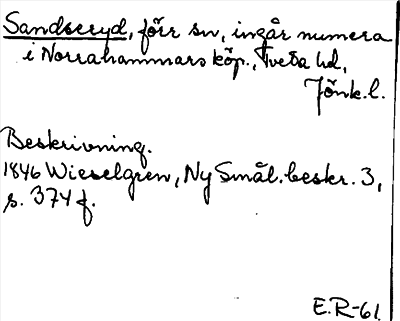 Sandseryd, förr sn, ingår numera
i Norrahammars köp., Tveta hd,
Jönk.l.
Beskrivning.
1846 Wieselgren, Ny Smål.beskr. 3,
s. 374 f.
E.R-61.